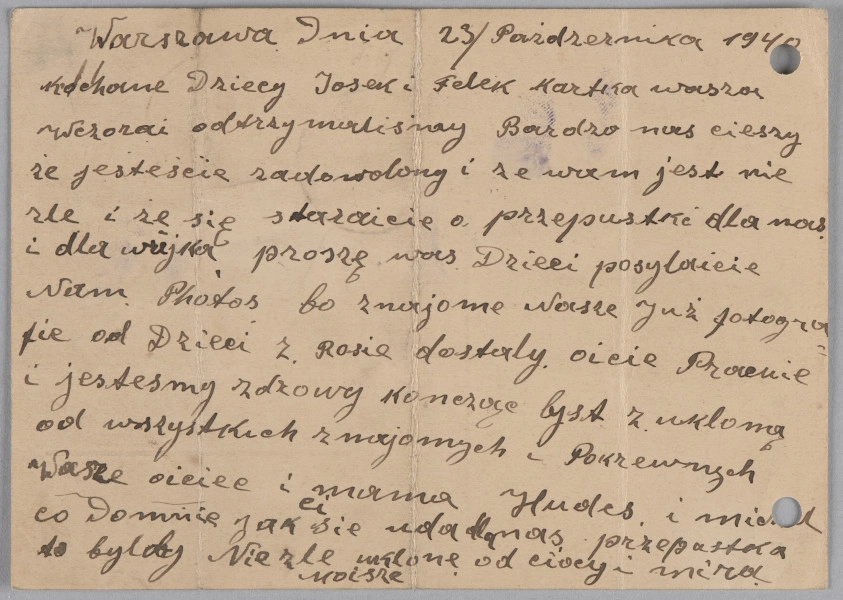 Warszawa Dnia 23/ Październiка 1940
Kochane Dziecy Josek i Felek Kartka wasza
Wczorai odtrzymaliśmy Bardzo nas cieszy
że jesteście zadowolony i ze wam jest nie
zle i że się staraicie o przepustki dla nas
i dla wujka proszę was Dzieci posylaicie
Nam Photos bo znajome Nasze Już fotogra
fie od Dzieci z Rosie dostaly. oicie Pracuie
i jestesmy zdrowy Kończąc lyst z uklomą
od wszystkich znajomych i Pokrewnych
Wasze oiciec i mama Hudes i
co Domnie jak ci sie uda dla nas przepustka
to bylby Niezle uklone od ciocy i mira
Moisze